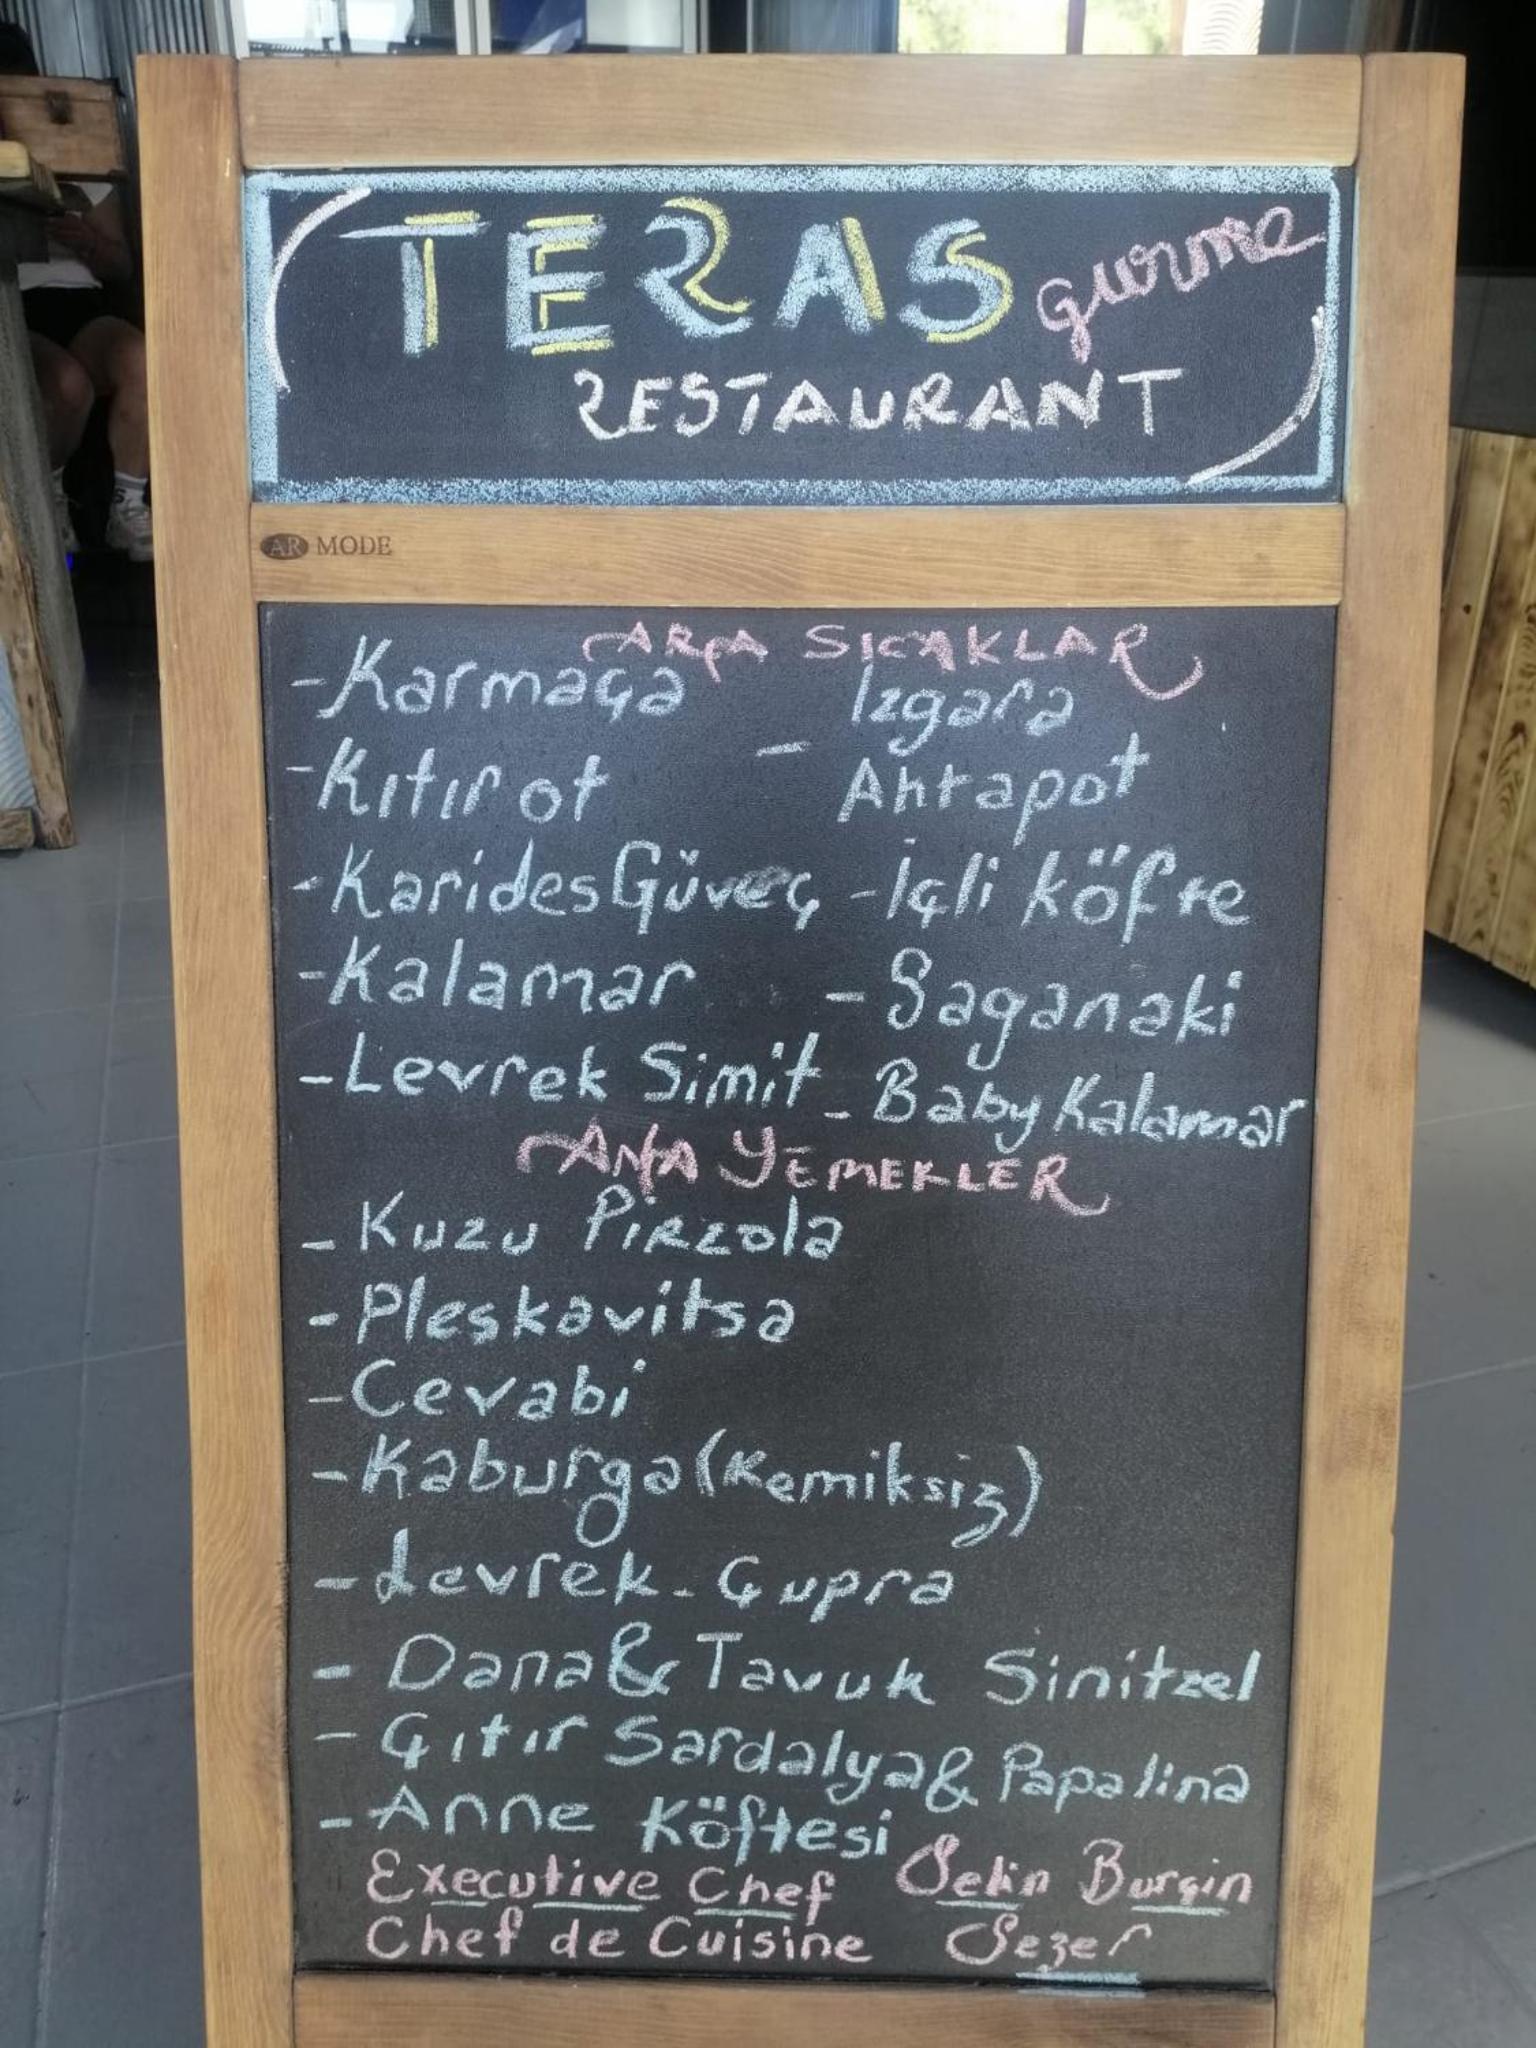 TERAS gurme
RESTAURANT
AR MODE
ARA SICAKLAR
-Karmaça
-Kıtır ot
-Karides Güveç
-Kalamar
-Levrek Simit
- Izgara
Ahtapot
-İçli köfte
-Saganaki
-Baby Kalamar
ANA YEMEKLER
-Kuzu PiRzola
-Pleskavitsa
-Cevabi
-Kaburga (Kemiksiz)
-Levrek-Çupra
-Dana & Tavuk Sinitzel
-Çıtır Sardalya & Papalina
-Anne Köftesi
Executive Chef Selin Burgin
Chef de Cuisine Sezer